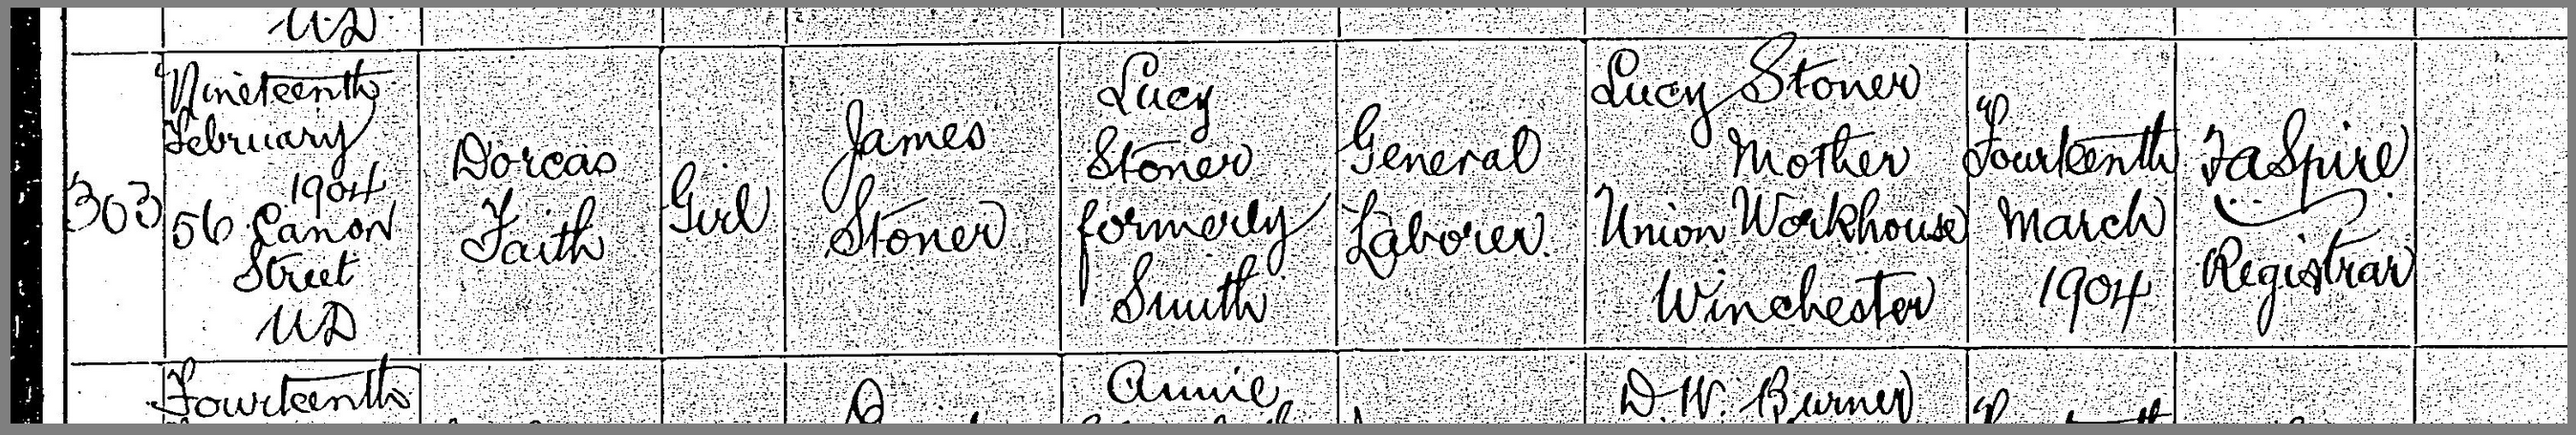 U.D
303
Nineteenth
February
1904
56 Canon
Street
U.D
Dorcas
Faith
Girl
James
Stoner
Lucy
Stoner
formerly
Smith
General
Laborer.
Lucy Stoner
Mother
Union Workhouse
Winchester
Fourteenth
March
1904
Registrar
Fourteenth
Annie
D. W. Burner